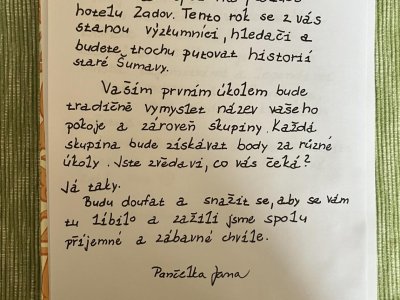 hotelu Zadov. Tento rok se z vás
stanou výzkumníci, hledači a
budete trochu putovat historií
staré Šumavy.
Vaším prvním úkolem bude
tradičně vymyslet název vašeho
pokoje a zároveň skupiny. Každá
skupina bude získávat body za různé
úkoly. Jste zvědaví, co vás čeká?
Já taky.
Budu doufat a snažit se, aby se vám
tu líbilo a zažili jsme spolu
příjemné a zábavné chvíle.
Paníčelka Jana